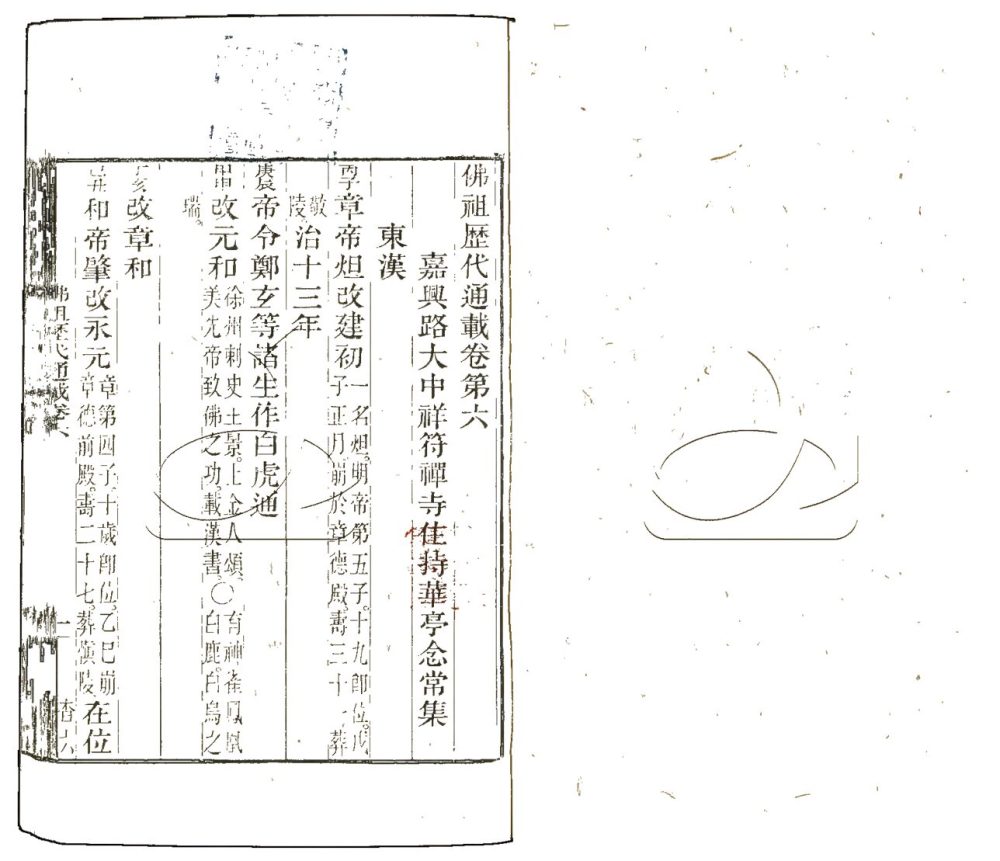 佛祖歷代通載卷第六
嘉興路大中祥符禪寺住持華亭念常集
東漢
章帝炟改建初一名炟。明帝第五子。十九卽位。戊
子正月。崩於章德殿。壽三十一葬
敬陵治十三年
帝令鄭玄等諸生作白虎通
改元和徐州刺史王景。上金人頌。○有神雀鳳凰
美先帝致佛之功。載漢書。白鹿。白烏之
瑞。
亥改章和
和帝肇改永元章第四子。十歲卽位。乙巳崩
章德前殿。壽二十七。葬慎陵在位
佛祖歷代通載卷六